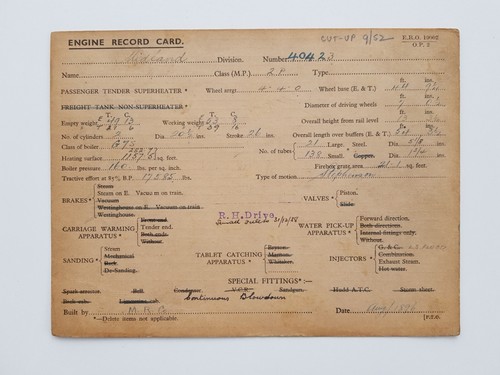 CUT-UP 9/52
E.R.O. 19062
O.P. 2
ENGINE RECORD CARD.
Midland Division. Number 40423
Name Class (M.P.) 2P Type
PASSENGER TENDER SUPERHEATER * Wheel arrgt. 4-4-0 Wheel base (E. & T.) ft. ins.
FREIGHT TANK NON-SUPERHEATER * Diameter of driving wheels ft. ins.
Empty weight Working weight Overall height from rail level
No. of cylinders 2 Dia. 20½ ins. Stroke 26 ins. Overall length over buffers (E. & T.)
Class of boiler G7S No. of tubes 21 Large, Steel. Dia.
Heating surface sq. feet. Small, Copper. Dia.
Boiler pressure 160 lbs. per sq. inch. Firebox grate area 21.1 sq. feet
Tractive effort at 85% B.P. 17585 lbs. Type of motion Stephenson
BRAKES * Steam
Steam on E. Vacuum on train.
Vacuum
Westinghouse on E. Vacuum on train.
Westinghouse.
VALVES * Piston.
Slide.
R.H. Drive.
CARRIAGE WARMING APPARATUS * Front end.
Tender end.
Both ends.
Without.
WATER PICK-UP APPARATUS * Forward direction.
Both directions.
Internal fittings only.
Without.
SANDING * Steam
Mechanical
Back.
De-Sanding.
TABLET CATCHING APPARATUS * Bryson.
Manson.
Whitaker.
INJECTORS * G. & C.
Combination.
Exhaust Steam.
Hot water.
SPECIAL FITTINGS * :—
Spark arrester. Bell. Condenser. V.C.R. Sandgun. Hudd A.T.C. Storm sheet.
Continuous Blowdown
Built by M. R. Co. Date Aug/1896
*—Delete items not applicable. [P.T.O.